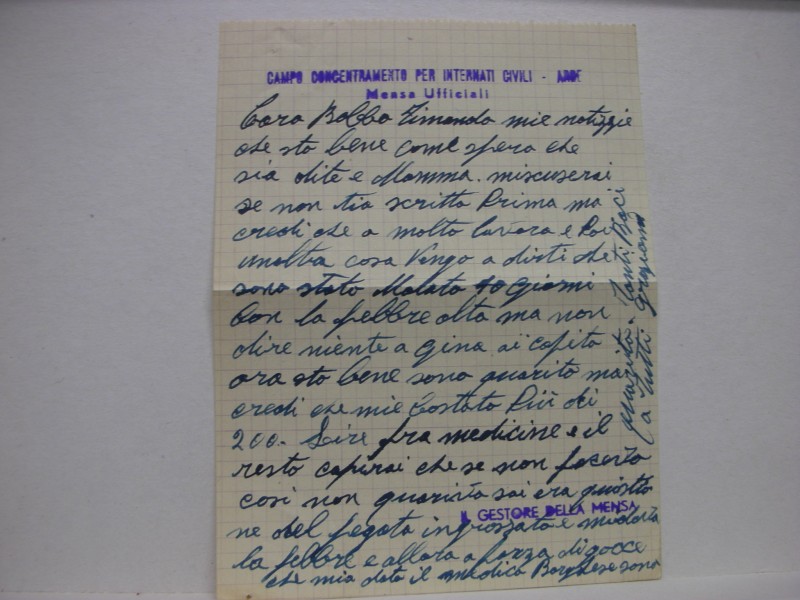 CAMPO CONCENTRAMENTO PER INTERNATI CIVILI - ARBE
Mensa Ufficiali
Caro Babbo Timando mie notizzie
che sto bene come spero che
sia di te e Mamma. miscuserai
se non tia scritto Prima ma
credi che a molto lavoro e Poi
unaltra cosa Vengo a dirti che
sono stato Malato 10 Giorni
Con la febbre alta ma non
dire niente a Gina ai capito
ora sto bene sono guarito ma
credi che mie Costato Più di
200. Leire fra medicine e il
resto capirai che se non facevo
cosi non guarivo sai era questio
ne del fegato ingrossato e mi dava
la febbre e allora a forza di gocce
che mia dato il medico Borghese sono
guarito. Tanti Baci
a tutti Graziano
IL GESTORE DELLA MENSA